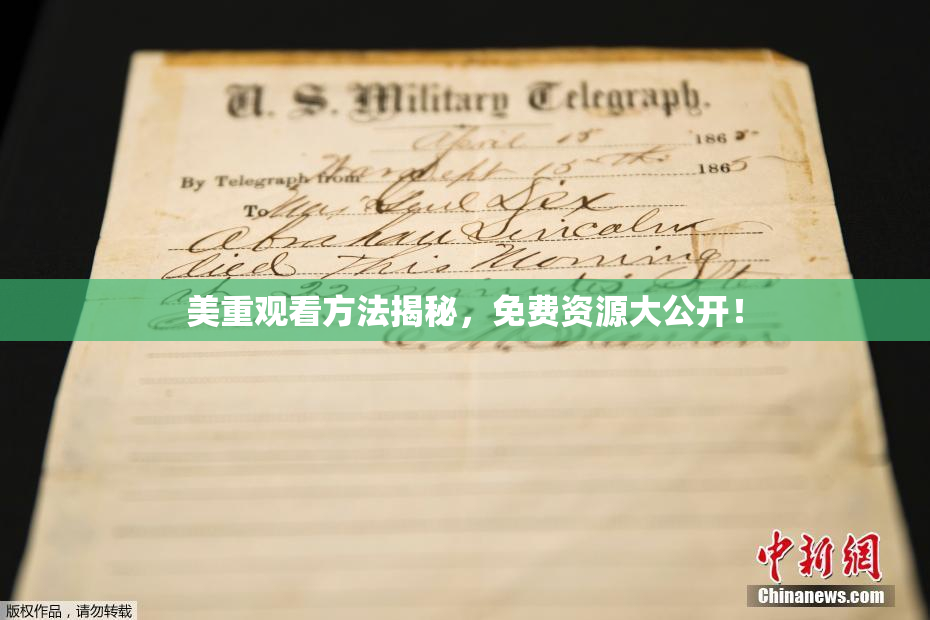 U. S. Military Telegraph.
April 15 1865
By Telegraph from War Dept 15th 1865
To Maj Genl Dix
Abraham Lincoln
died This Morning
at 22 minutes after
美重观看方法揭秘，免费资源大公开！
中新网
Chinanews.com
版权作品，请勿转载